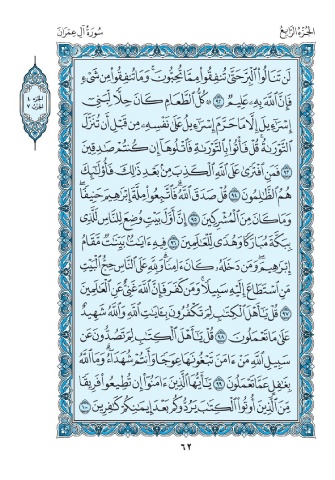 الجزء الرابع
سورة آل عمران
الجزء ٤
الحزب ٧
لَن تَنَالُوا۟ ٱلْبِرَّ حَتَّىٰ تُنفِقُوا۟ مِمَّا تُحِبُّونَ ۚ وَمَا تُنفِقُوا۟ مِن شَىْءٍ
فَإِنَّ ٱللَّهَ بِهِۦ عَلِيمٌ ٩٢ ۞ كُلُّ ٱلطَّعَامِ كَانَ حِلًّا لِّبَنِىٓ
إِسْرَٰٓءِيلَ إِلَّا مَا حَرَّمَ إِسْرَٰٓءِيلُ عَلَىٰ نَفْسِهِۦ مِن قَبْلِ أَن تُنَزَّلَ
ٱلتَّوْرَىٰةُ ۗ قُلْ فَأْتُوا۟ بِٱلتَّوْرَىٰةِ فَٱتْلُوهَآ إِن كُنتُمْ صَٰدِقِينَ
٩٣ فَمَنِ ٱفْتَرَىٰ عَلَى ٱللَّهِ ٱلْكَذِبَ مِنۢ بَعْدِ ذَٰلِكَ فَأُو۟لَٰٓئِكَ
هُمُ ٱلظَّٰلِمُونَ ٩٤ قُلْ صَدَقَ ٱللَّهُ ۗ فَٱتَّبِعُوا۟ مِلَّةَ إِبْرَٰهِيمَ حَنِيفًا
وَمَا كَانَ مِنَ ٱلْمُشْرِكِينَ ٩٥ إِنَّ أَوَّلَ بَيْتٍ وُضِعَ لِلنَّاسِ لَلَّذِى
بِبَكَّةَ مُبَارَكًا وَهُدًى لِّلْعَٰلَمِينَ ٩٦ فِيهِ ءَايَٰتٌۢ بَيِّنَٰتٌ مَّقَامُ
إِبْرَٰهِيمَ ۖ وَمَن دَخَلَهُۥ كَانَ ءَامِنًا ۗ وَلِلَّهِ عَلَى ٱلنَّاسِ حِجُّ ٱلْبَيْتِ
مَنِ ٱسْتَطَاعَ إِلَيْهِ سَبِيلًا ۚ وَمَن كَفَرَ فَإِنَّ ٱللَّهَ غَنِىٌّ عَنِ ٱلْعَٰلَمِينَ
٩٧ قُلْ يَٰٓأَهْلَ ٱلْكِتَٰبِ لِمَ تَكْفُرُونَ بِـَٔايَٰتِ ٱللَّهِ وَٱللَّهُ شَهِيدٌ
عَلَىٰ مَا تَعْمَلُونَ ٩٨ قُلْ يَٰٓأَهْلَ ٱلْكِتَٰبِ لِمَ تَصُدُّونَ عَن
سَبِيلِ ٱللَّهِ مَنْ ءَامَنَ تَبْغُونَهَا عِوَجًا وَأَنتُمْ شُهَدَآءُ ۗ وَمَا ٱللَّهُ
بِغَٰفِلٍ عَمَّا تَعْمَلُونَ ٩٩ يَٰٓأَيُّهَا ٱلَّذِينَ ءَامَنُوٓا۟ إِن تُطِيعُوا۟ فَرِيقًا
مِّنَ ٱلَّذِينَ أُوتُوا۟ ٱلْكِتَٰبَ يَرُدُّوكُم بَعْدَ إِيمَٰنِكُمْ كَٰفِرِينَ ١٠٠
٦٢